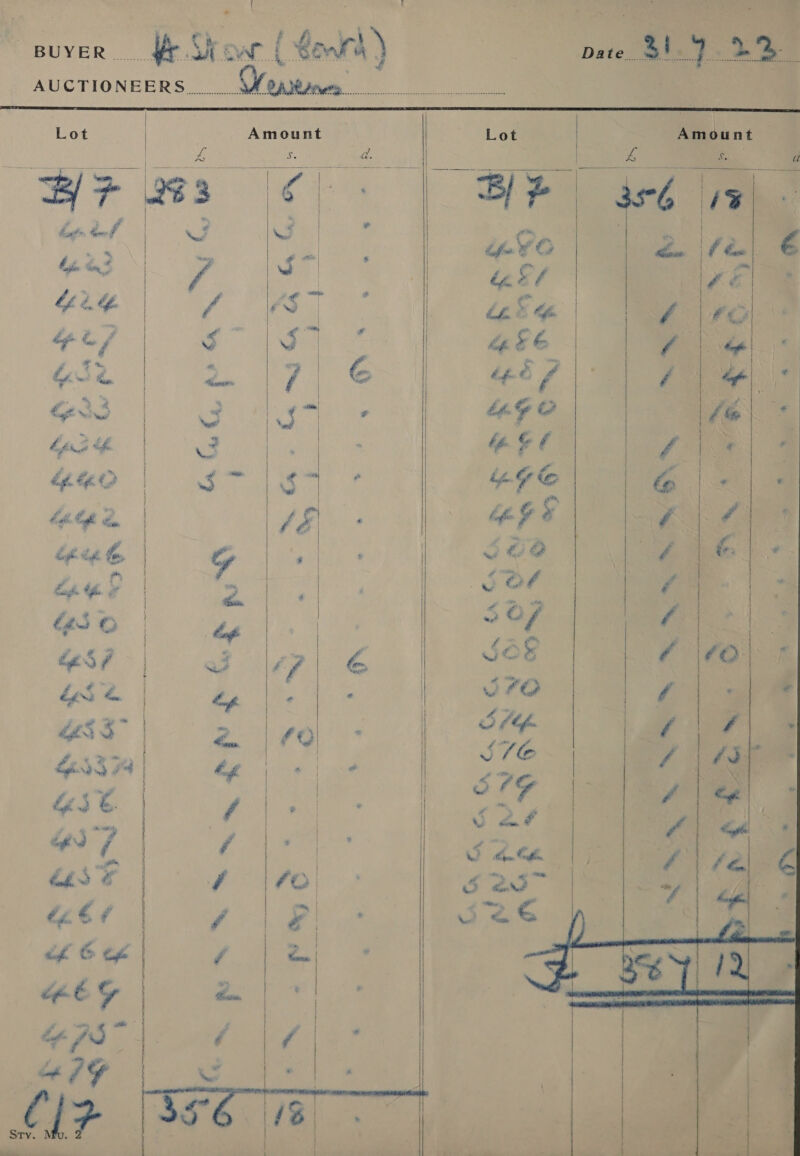 BUYER
Date 31.7.23
AUCTIONEERS
Lot Amount Lot Amount
£ s. d. £ s. d
B/F 283 6 - B/F 356 18 -
421 3 3 - 480 2 12 6
423 7 5 - 481 18
424 1 15 - 484 1 10
427 5 5 - 486 1 4 -
432 2 7 6 487 1 4 -
433 3 5 - 490 16 -
434 3 - - 491 1 - -
440 5 5 - 496 6 - -
442 18 - 498 1 1
446 9 - - 500 1 6 -
448 2 - - 501 1 - -
450 4 - - 507 1 - -
451 3 17 6 508 1 10 -
452 4 - - 510 1 - -
453 2 10 - 514 1 1 -
453A 4 - - 516 1 15 -
456 1 - - 519 1 4
457 1 - - 521 1 4 -
458 1 10 - 524 1 12 6
461 1 8 - 525 1 4 -
464 1 2 - 526 12 -
469 2 - - £ 387 12 -
475 1 1 -
479 3 - -
C/F 356 18 -
STY. MFU. 2